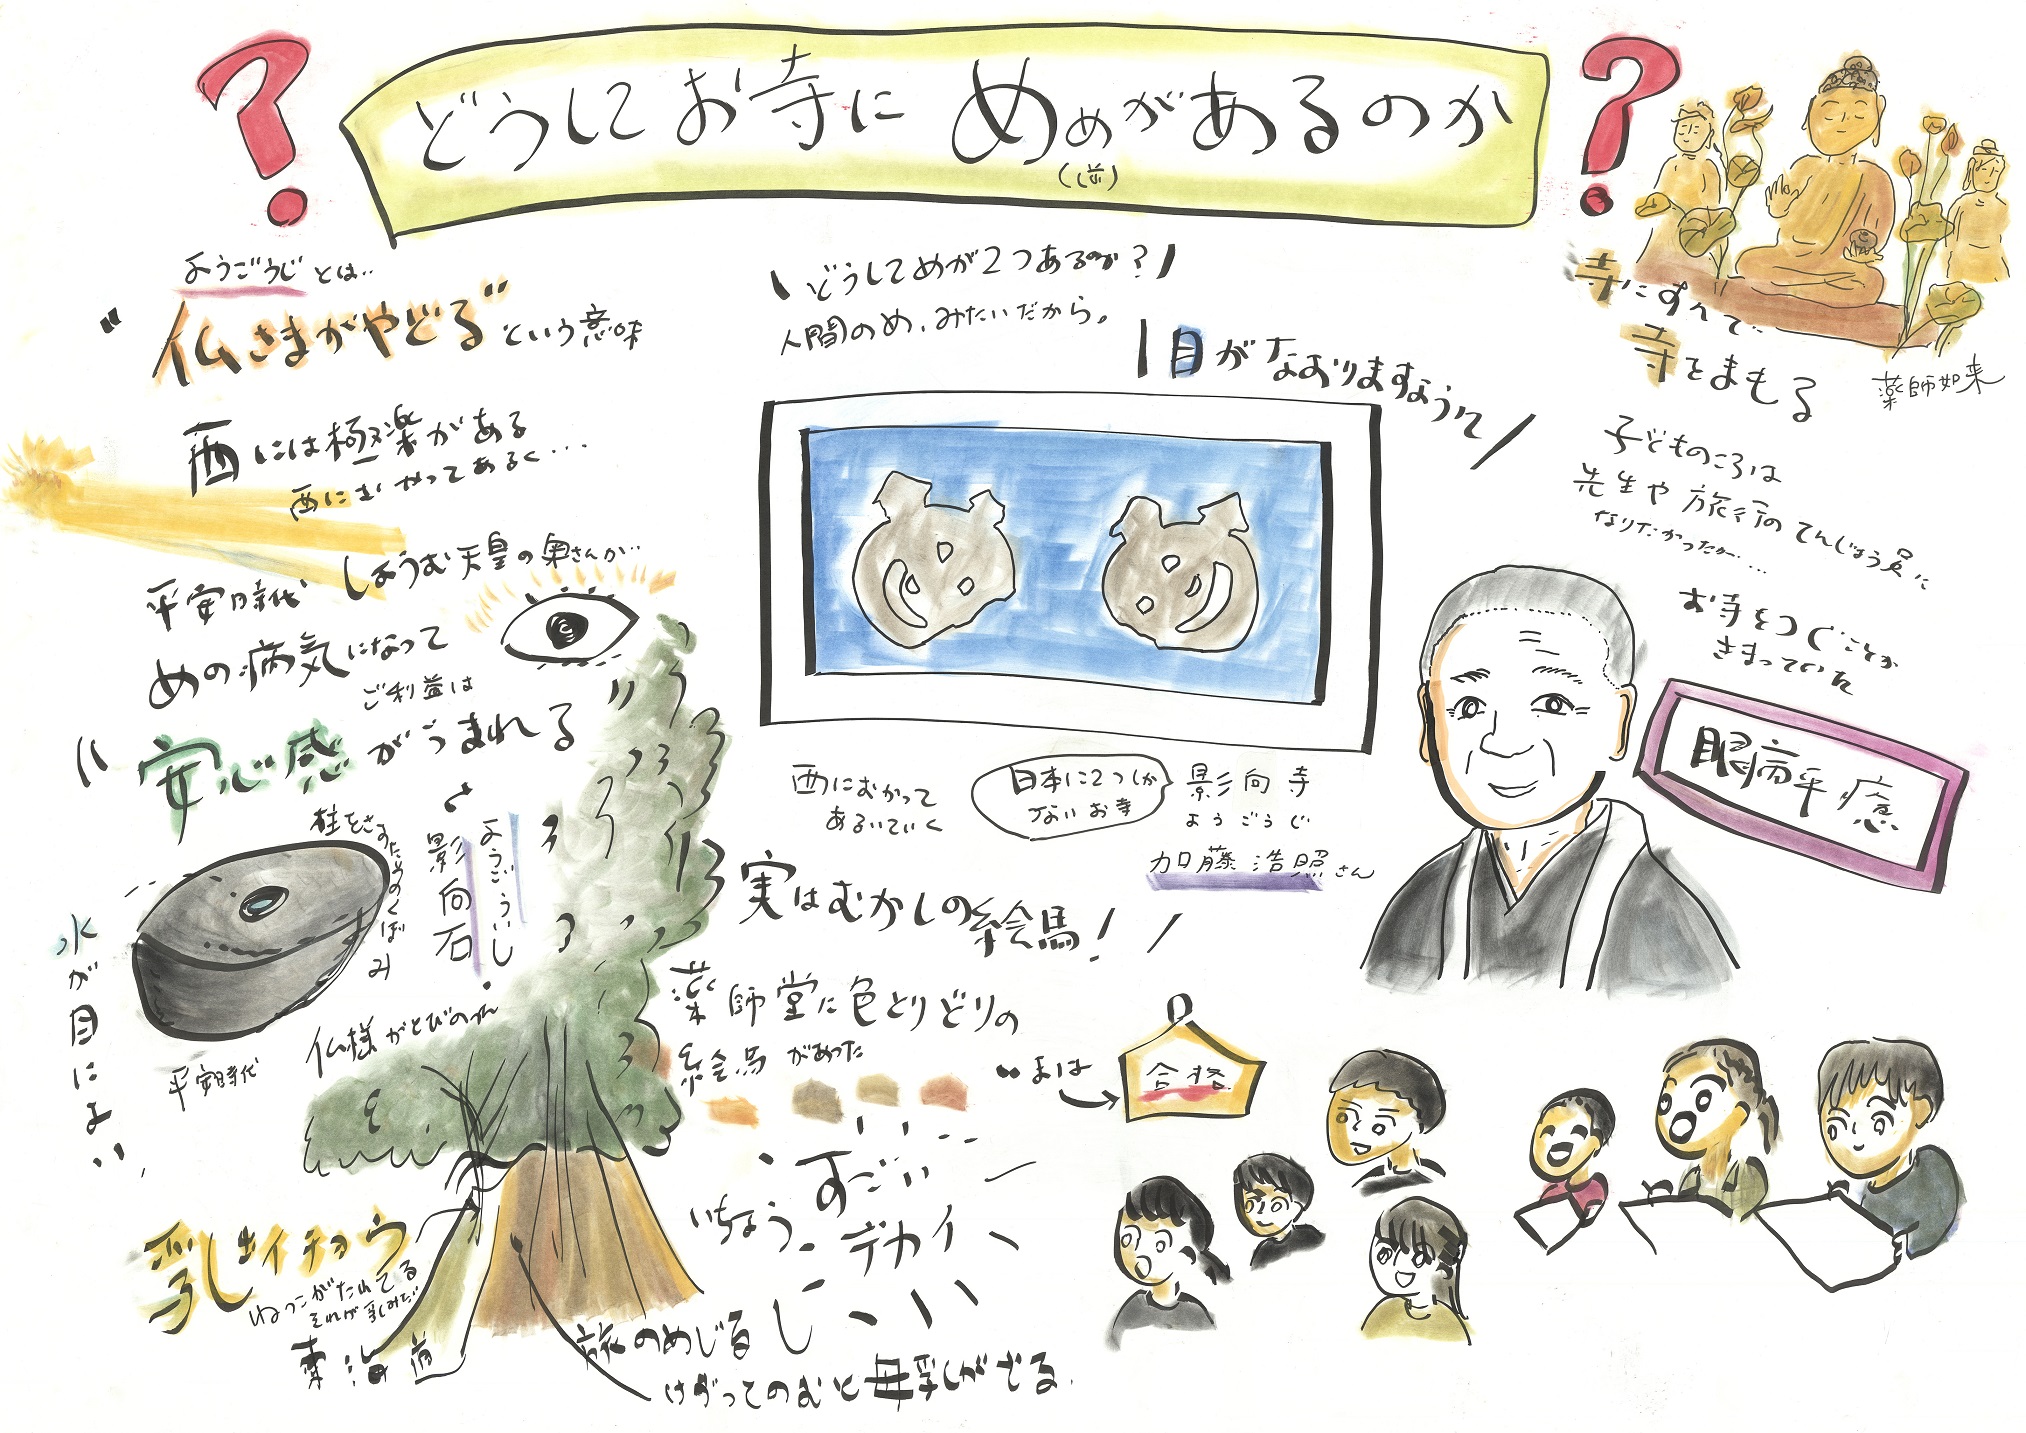 どうしてお寺にめめがあるのか
ようごうじとは..
"仏さまがやどる"という意味
西には極楽がある
西にむかってあるく...
平安時代 しょうむ天皇の奥さんが...
めの病気になって
ご利益は
"安心感がうまれる"
柱をさすためのくぼみ
ようごういし
影向石
水が目によい
平安時代
仏様がとびのった
乳イチョウ
ねっこがたれてる
それが乳みたい
東海道
\どうしてめが2つあるのか?/
人間のめ、みたいだから。
\目がなおりますように/
西にむかって
あるいていく
日本に2つしか
ないお寺
影向寺
ようごうじ
加藤浩照さん
実はむかしの絵馬!
薬師堂に色とりどりの
絵馬があった
いまは
合格
いちょう、すごい
デカイ
旅のめじるし
けずってのむと母乳がでる
寺にすんで
寺をまもる
薬師如来
子どものころは
先生や旅行のてんじょう員に
なりたかったが...
お寺をつぐことが
きまっていた
眼病平癒